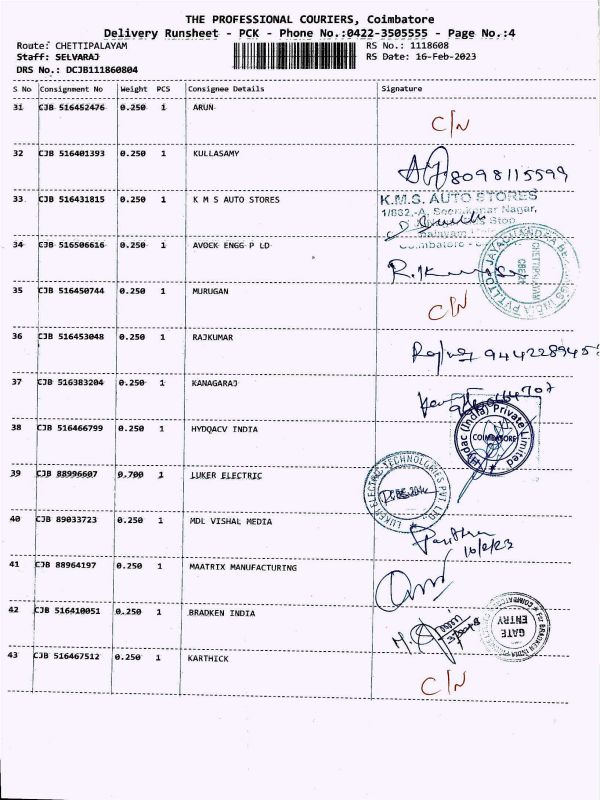 THE PROFESSIONAL COURIERS, Coimbatore
Delivery Runsheet - PCK - Phone No.:0422-3505555 - Page No.:4
Route: CHETTIPALAYAM RS No.: 1118608
Staff: SELVARAJ RS Date: 16-Feb-2023
DRS No.: DCJB111860804
S No Consignment No Weight PCS Consignee Details Signature
31 CJB 516452476 0.250 1 ARUN
C/N
32 CJB 516401393 0.250 1 KULLASAMY
8098115599
33 CJB 516431815 0.250 1 K M S AUTO STORES
K.M.S. AUTO STORES
34 CJB 516506616 0.250 1 AVOCK ENGG P LD
CHETTIPALAYAM
35 CJB 516450744 0.250 1 MURUGAN
C/N
36 CJB 516453048 0.250 1 RAJKUMAR
37 CJB 516383204 0.250 1 KANAGARAJ
38 CJB 516466799 0.250 1 HYDQACV INDIA
Hydac (India) Private Limited
COIMBATORE
39 CJB 88996607 0.700 1 LUKER ELECTRIC
LUKER ELECTRIC TECHNOLOGIES PVT. LTD.
40 CJB 89033723 0.250 1 MDL VISHAL MEDIA
16/2/23
41 CJB 88964197 0.250 1 MAATRIX MANUFACTURING
42 CJB 516410051 0.250 1 BRADKEN INDIA
GATE
ENTRY
43 CJB 516467512 0.250 1 KARTHICK
C/N